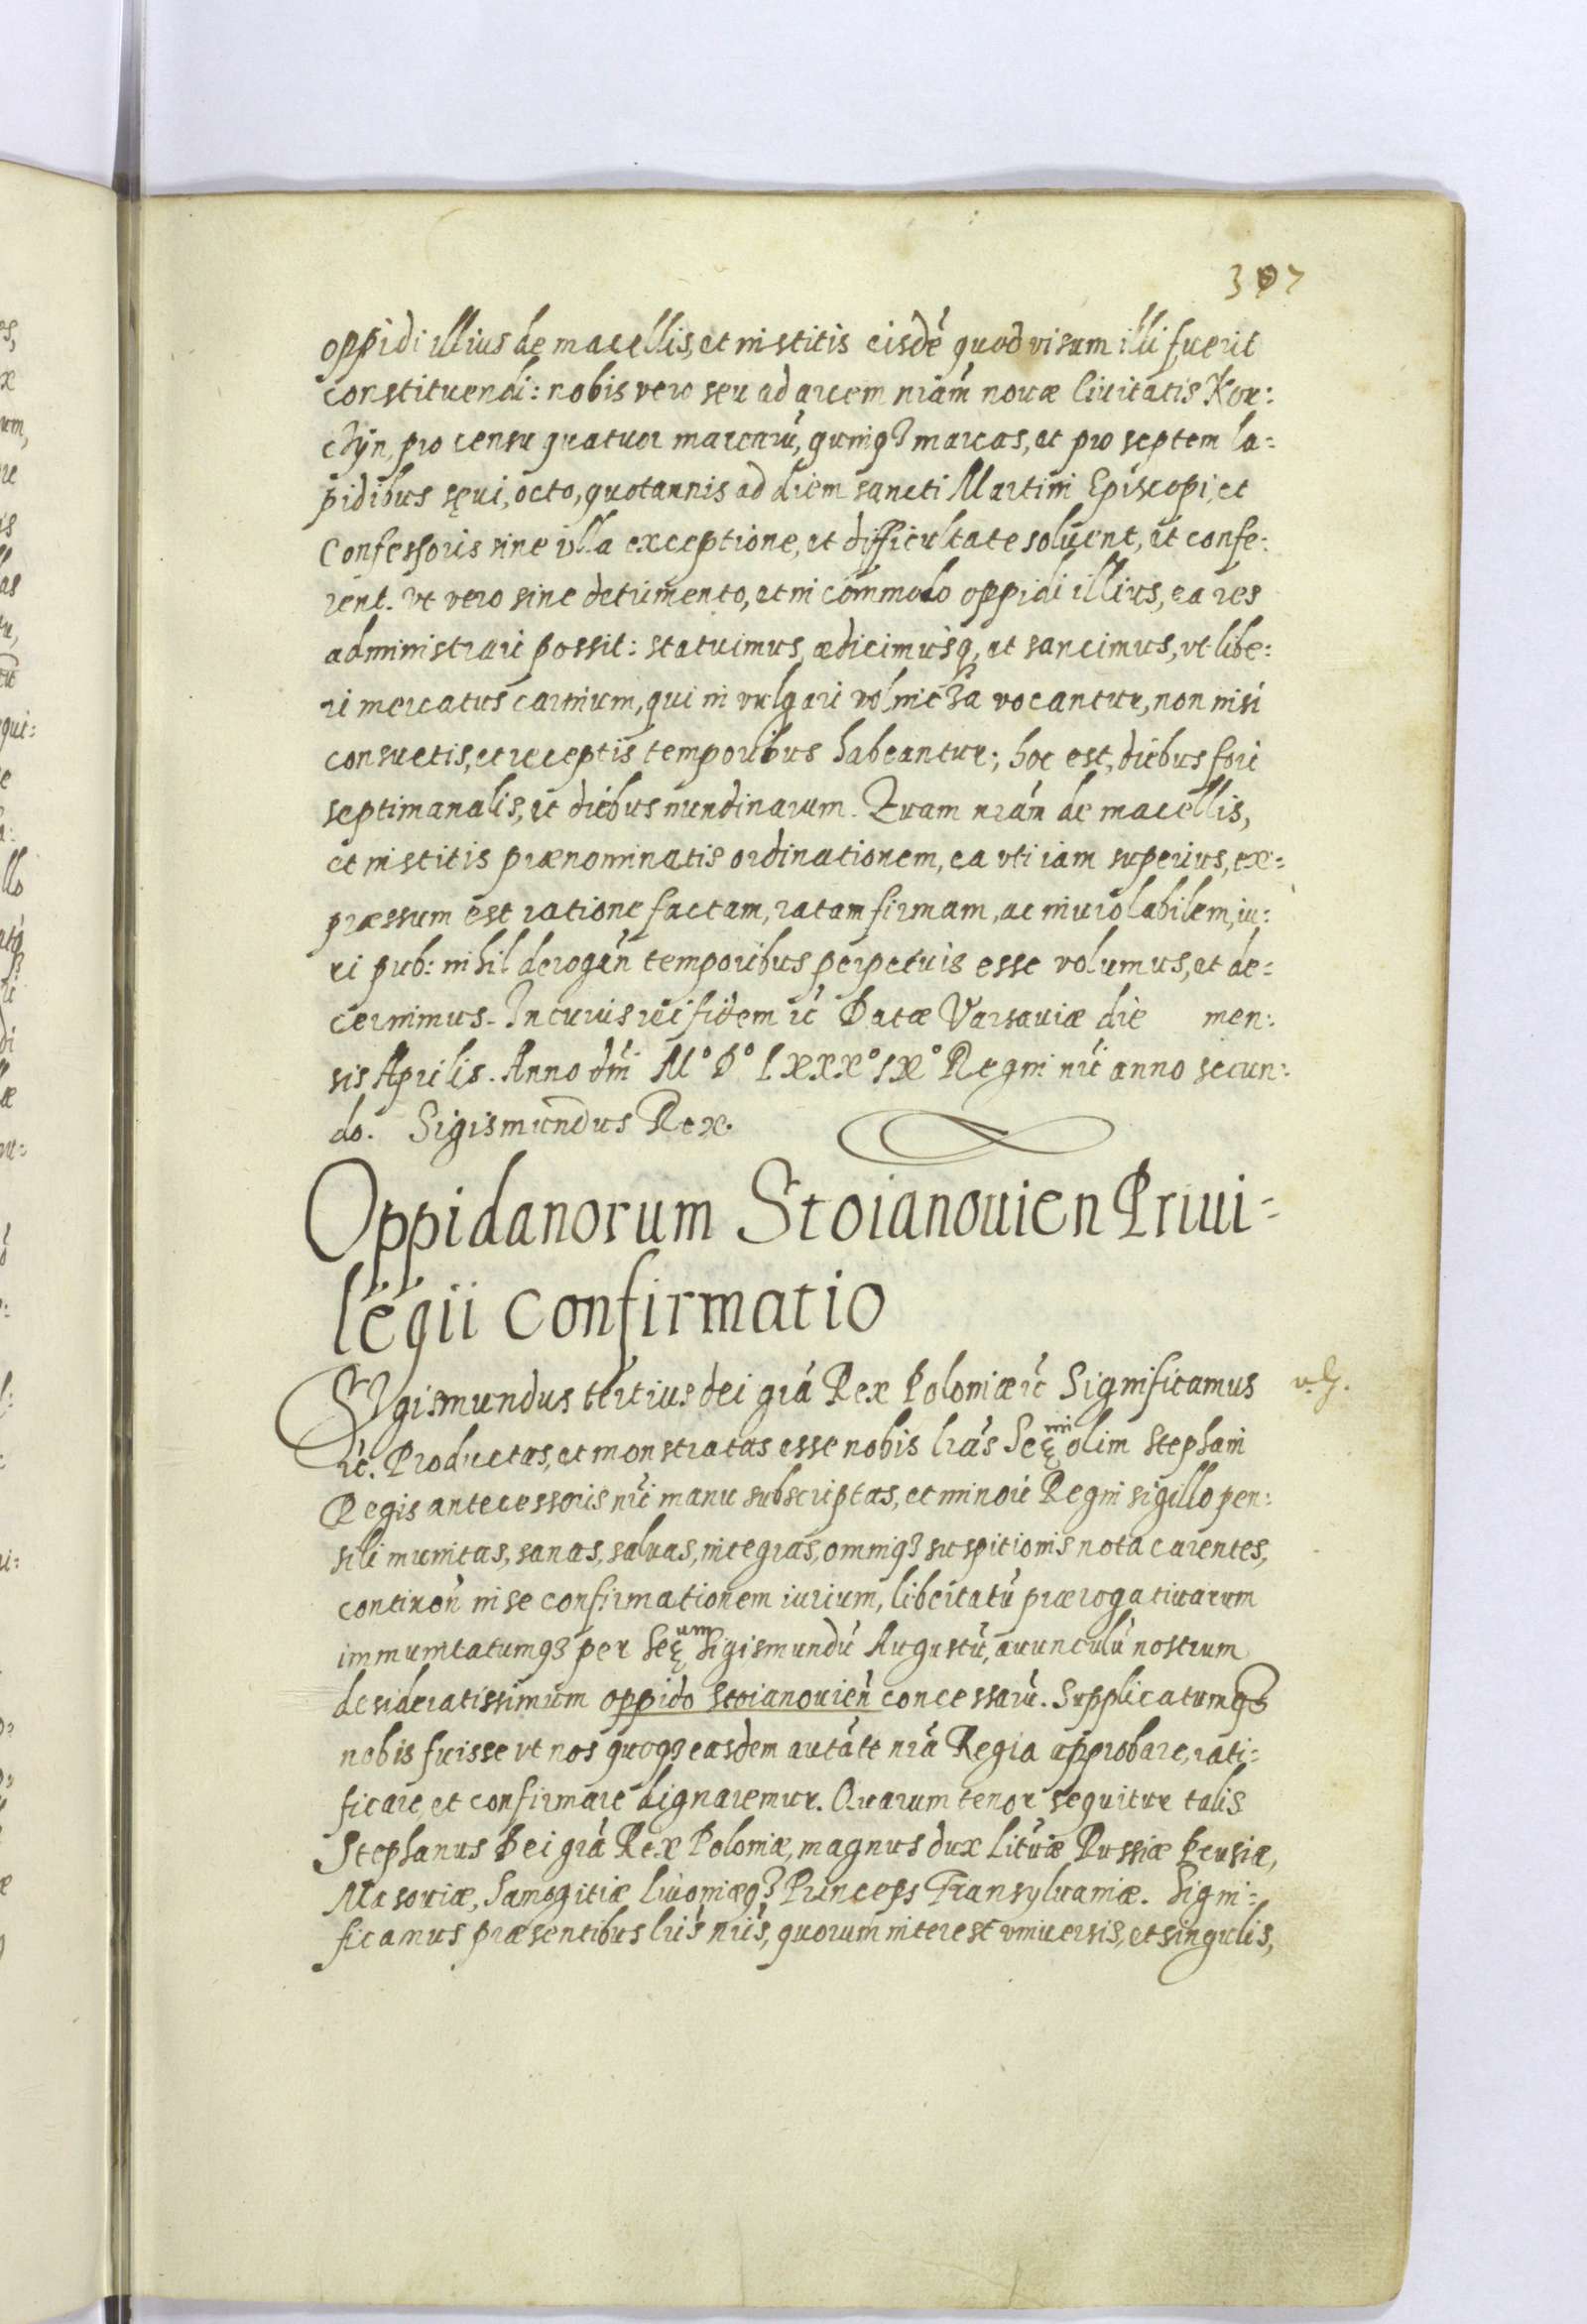 307
oppidi illius de macellis, et institis eisdē quod visum illi fuerit
constituendi: nobis vero seu ad arcem nr̄am nouæ Ciuitatis Kor:
cżÿn, pro censu quatuor marcarū, quinq3 marcas, et pro septem la:
pidibus sęui, octo, quotannis ad diem sancti Martini Episcopi, et
Confessoris sine vlla exceptione, et difficultate soluent, et confe:
rent. Vt vero sine detrimento, et in commodo oppidi illius, ea res
administrari possit: statuimus, ædicimusq3, et sancimus, vt libe:
ri mercatus carnium, qui in vulgari volnicza vocantur, non nisi
consuetis, et receptis temporibus habeantur; hoc est, diebus fori
septimanalis, et diebus nundinarum. Quam nr̄am de macellis,
et institis prænominatis ordinationem, ea vti iam superius, ex:
præssum est ratione factam, ratam firmam, ac inuiolabilem, iu:
ri pub: nihil derogen̄ temporibus perpetuis esse volumus, et de:
cernimus. In cuius rei fidem ec̄ Datæ Varsauiæ die men:
sis Aprilis. Anno dn̄i M° D° LXXX° IX° Regni nr̄i anno secun:
do. Sigismundus Rex.
Oppidanorum Stoianouien Priui-
legii confirmatio
SYgismundus tertius dei gr̄a Rex Poloniæ ec̄ Significamus
v. G.
ec̄. Productas, et monstratas esse nobis lr̄as Seę mi olim Stephani
Regis antecessoris nr̄i manu subscriptas, et minori Regni sigillo pen:
sili munitas, sanas, saluas, integras, omniq3 suspitionis nota carentes,
continen̄ in se confirmationem iurium, libertatū prærogatiuarum
immunitatumq3 per Seę um Sigismundū Augustū, auunculū nostrum
desideratissimum oppido Stoianouien̄ concessarū. Supplicatumq3
nobis fuisse vt nos quoq3 easdem autāte nr̄a Regia approbare, rati:
ficare, et confirmare dignaremur. Quarum tenor sequitur talis
Stephanus Dei gr̄a Rex Poloniæ, magnus dux Lituæ Russiæ Prusiæ,
Masouiæ, Samogitiæ Liuoniæq3 Princeps Transyluaniæ. Signi:
ficamus præsentibus lr̄is nr̄is, quorum interest vniuersis, et singulis,